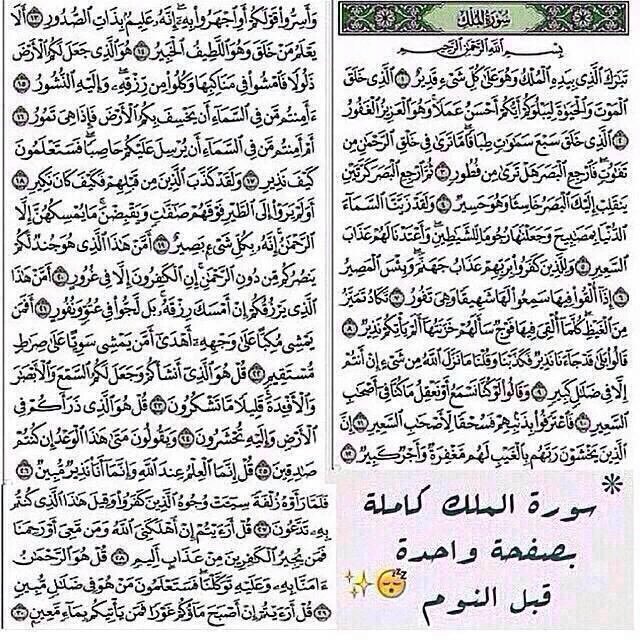 سُورَةُ المُلْكِ
بِسْمِ ٱللَّهِ ٱلرَّحْمَٰنِ ٱلرَّحِيمِ
تَبَٰرَكَ ٱلَّذِى بِيَدِهِ ٱلْمُلْكُ وَهُوَ عَلَىٰ كُلِّ شَىْءٍ قَدِيرٌ ١ ٱلَّذِى خَلَقَ
ٱلْمَوْتَ وَٱلْحَيَوٰةَ لِيَبْلُوَكُمْ أَيُّكُمْ أَحْسَنُ عَمَلًا وَهُوَ ٱلْعَزِيزُ ٱلْغَفُورُ
٢ ٱلَّذِى خَلَقَ سَبْعَ سَمَٰوَٰتٍ طِبَاقًا مَّا تَرَىٰ فِى خَلْقِ ٱلرَّحْمَٰنِ مِن
تَفَٰوُتٍ فَٱرْجِعِ ٱلْبَصَرَ هَلْ تَرَىٰ مِن فُطُورٍ ٣ ثُمَّ ٱرْجِعِ ٱلْبَصَرَ كَرَّتَيْنِ
يَنقَلِبْ إِلَيْكَ ٱلْبَصَرُ خَاسِئًا وَهُوَ حَسِيرٌ ٤ وَلَقَدْ زَيَّنَّا ٱلسَّمَآءَ
ٱلدُّنْيَا بِمَصَٰبِيحَ وَجَعَلْنَٰهَا رُجُومًا لِّلشَّيَٰطِينِ وَأَعْتَدْنَا لَهُمْ عَذَابَ
ٱلسَّعِيرِ ٥ وَلِلَّذِينَ كَفَرُوا۟ بِرَبِّهِمْ عَذَابُ جَهَنَّمَ وَبِئْسَ ٱلْمَصِيرُ
٦ إِذَآ أُلْقُوا۟ فِيهَا سَمِعُوا۟ لَهَا شَهِيقًا وَهِىَ تَفُورُ ٧ تَكَادُ تَمَيَّزُ
مِنَ ٱلْغَيْظِ كُلَّمَآ أُلْقِىَ فِيهَا فَوْجٌ سَأَلَهُمْ خَزَنَتُهَآ أَلَمْ يَأْتِكُمْ نَذِيرٌ ٨
قَالُوا۟ بَلَىٰ قَدْ جَآءَنَا نَذِيرٌ فَكَذَّبْنَا وَقُلْنَا مَا نَزَّلَ ٱللَّهُ مِن شَىْءٍ إِنْ أَنتُمْ
إِلَّا فِى ضَلَٰلٍ كَبِيرٍ ٩ وَقَالُوا۟ لَوْ كُنَّا نَسْمَعُ أَوْ نَعْقِلُ مَا كُنَّا فِىٓ أَصْحَٰبِ
ٱلسَّعِيرِ ١٠ فَٱعْتَرَفُوا۟ بِذَنۢبِهِمْ فَسُحْقًا لِّأَصْحَٰبِ ٱلسَّعِيرِ ١١ إِنَّ
ٱلَّذِينَ يَخْشَوْنَ رَبَّهُم بِٱلْغَيْبِ لَهُم مَّغْفِرَةٌ وَأَجْرٌ كَبِيرٌ ١٢
وَأَسِرُّوا۟ قَوْلَكُمْ أَوِ ٱجْهَرُوا۟ بِهِۦٓ إِنَّهُۥ عَلِيمٌۢ بِذَاتِ ٱلصُّدُورِ ١٣ أَلَا
يَعْلَمُ مَنْ خَلَقَ وَهُوَ ٱللَّطِيفُ ٱلْخَبِيرُ ١٤ هُوَ ٱلَّذِى جَعَلَ لَكُمُ ٱلْأَرْضَ
ذَلُولًا فَٱمْشُوا۟ فِى مَنَاكِبِهَا وَكُلُوا۟ مِن رِّزْقِهِۦ وَإِلَيْهِ ٱلنُّشُورُ ١٥
ءَأَمِنتُم مَّن فِى ٱلسَّمَآءِ أَن يَخْسِفَ بِكُمُ ٱلْأَرْضَ فَإِذَا هِىَ تَمُورُ ١٦
أَمْ أَمِنتُم مَّن فِى ٱلسَّمَآءِ أَن يُرْسِلَ عَلَيْكُمْ حَاصِبًا فَسَتَعْلَمُونَ
كَيْفَ نَذِيرِ ١٧ وَلَقَدْ كَذَّبَ ٱلَّذِينَ مِن قَبْلِهِمْ فَكَيْفَ كَانَ نَكِيرِ ١٨
أَوَلَمْ يَرَوْا۟ إِلَى ٱلطَّيْرِ فَوْقَهُمْ صَٰٓفَّٰتٍ وَيَقْبِضْنَ مَا يُمْسِكُهُنَّ إِلَّا
ٱلرَّحْمَٰنُ إِنَّهُۥ بِكُلِّ شَىْءٍۭ بَصِيرٌ ١٩ أَمَّنْ هَٰذَا ٱلَّذِى هُوَ جُندٌ لَّكُمْ
يَنصُرُكُم مِّن دُونِ ٱلرَّحْمَٰنِ إِنِ ٱلْكَٰفِرُونَ إِلَّا فِى غُرُورٍ ٢٠ أَمَّنْ هَٰذَا
ٱلَّذِى يَرْزُقُكُمْ إِنْ أَمْسَكَ رِزْقَهُۥ بَل لَّجُّوا۟ فِى عُتُوٍّ وَنُفُورٍ ٢١ أَفَمَن
يَمْشِى مُكِبًّا عَلَىٰ وَجْهِهِۦٓ أَهْدَىٰٓ أَمَّن يَمْشِى سَوِيًّا عَلَىٰ صِرَٰطٍ
مُّسْتَقِيمٍ ٢٢ قُلْ هُوَ ٱلَّذِىٓ أَنشَأَكُمْ وَجَعَلَ لَكُمُ ٱلسَّمْعَ وَٱلْأَبْصَٰرَ
وَٱلْأَفْـِٔدَةَ قَلِيلًا مَّا تَشْكُرُونَ ٢٣ قُلْ هُوَ ٱلَّذِى ذَرَأَكُمْ فِى
ٱلْأَرْضِ وَإِلَيْهِ تُحْشَرُونَ ٢٤ وَيَقُولُونَ مَتَىٰ هَٰذَا ٱلْوَعْدُ إِن كُنتُمْ
صَٰدِقِينَ ٢٥ قُلْ إِنَّمَا ٱلْعِلْمُ عِندَ ٱللَّهِ وَإِنَّمَآ أَنَا۠ نَذِيرٌ مُّبِينٌ ٢٦
فَلَمَّا رَأَوْهُ زُلْفَةً سِيٓـَٔتْ وُجُوهُ ٱلَّذِينَ كَفَرُوا۟ وَقِيلَ هَٰذَا ٱلَّذِى كُنتُم
بِهِۦ تَدَّعُونَ ٢٧ قُلْ أَرَءَيْتُمْ إِنْ أَهْلَكَنِىَ ٱللَّهُ وَمَن مَّعِىَ أَوْ رَحِمَنَا
فَمَن يُجِيرُ ٱلْكَٰفِرِينَ مِنْ عَذَابٍ أَلِيمٍ ٢٨ قُلْ هُوَ ٱلرَّحْمَٰنُ
ءَامَنَّا بِهِۦ وَعَلَيْهِ تَوَكَّلْنَا فَسَتَعْلَمُونَ مَنْ هُوَ فِى ضَلَٰلٍ مُّبِينٍ
٢٩ قُلْ أَرَءَيْتُمْ إِنْ أَصْبَحَ مَآؤُكُمْ غَوْرًا فَمَن يَأْتِيكُم بِمَآءٍ مَّعِينٍۭ ٣٠
* سورة الملك كاملة
بصفحة واحدة
قبل النوم